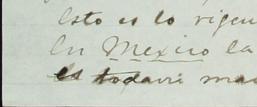 Esto es lo rigeu
En Mexico la
es todavi mas